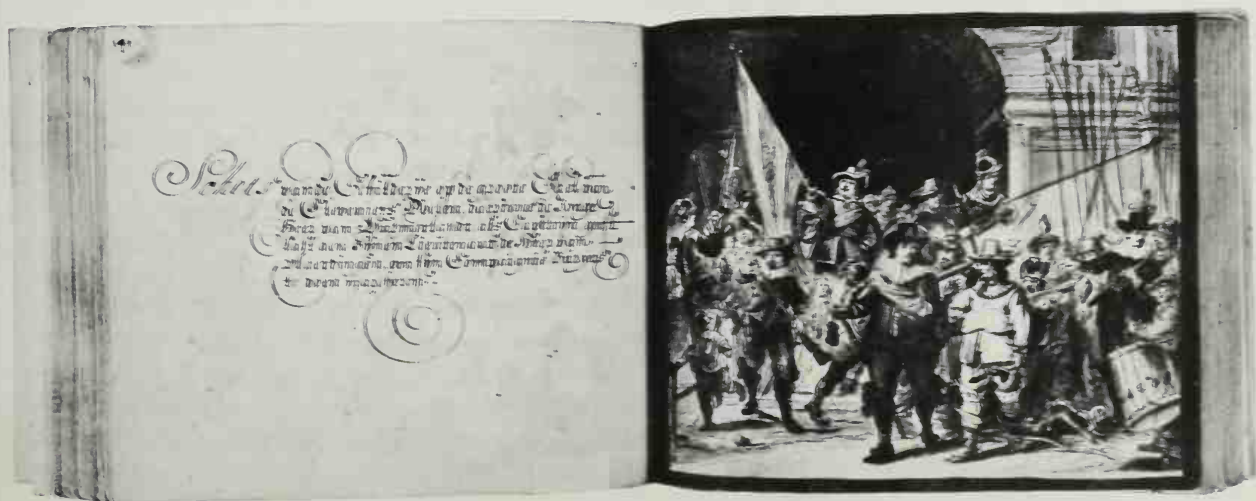 Schets vande Schilderije op de groote Sael van
de Cleveniers Doelen, daerinne de Jonge
Heer van Purmerlandt als Capiteijn geeft
last aen zijnen Lieutenant de Heer van
Vlaerdingen, om sijn Compaignie Burgers
te doen marcheren.